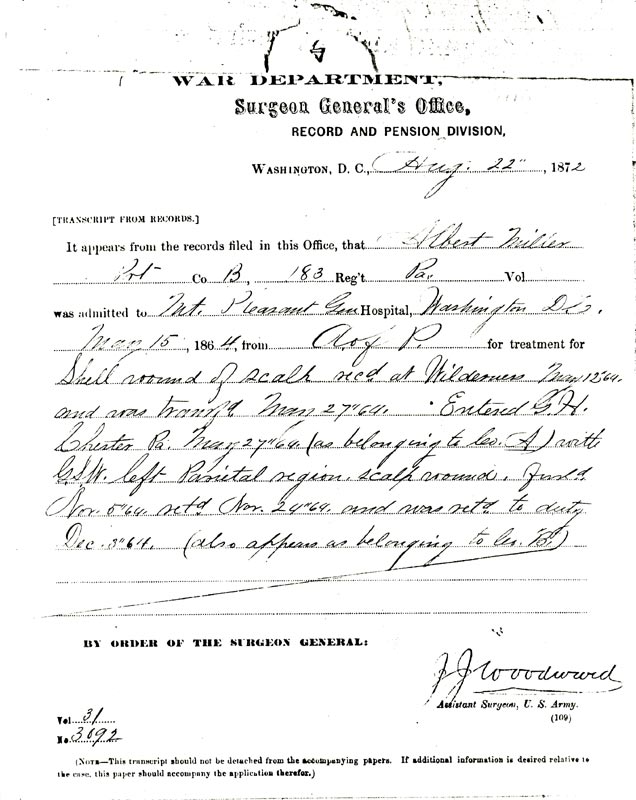 WAR DEPARTMENT,
Surgeon General's Office,
RECORD AND PENSION DIVISION,
WASHINGTON, D. C., Aug. 22", 1872
[TRANSCRIPT FROM RECORDS.]
It appears from the records filed in this Office, that Albert Miller
Pvt Co B, 183 Reg't Pa. Vol
was admitted to Mt. Pleasant Gen. Hospital, Washington D.C.
May 15, 1864, from A of P for treatment for
Shell wound of scalp rec'd at Wilderness May 12"64.
and was transf'd May 27"64. Entered G. H.
Chester Pa. May 27"64 (as belonging to Co. A) with
G.S.W. left Parietal region, scalp wound. Furl'd
Nov. 5"64. ret'd Nov. 24"64. and was ret'd to duty
Dec. 3"64. (also appears as belonging to Co. B.)
BY ORDER OF THE SURGEON GENERAL:
J J Woodward
Assistant Surgeon, U. S. Army.
(109)
Vol 31
No. 3092
(NOTE—This transcript should not be detached from the accompanying papers. If additional information is desired relative to
the case, this paper should accompany the application therefor.)